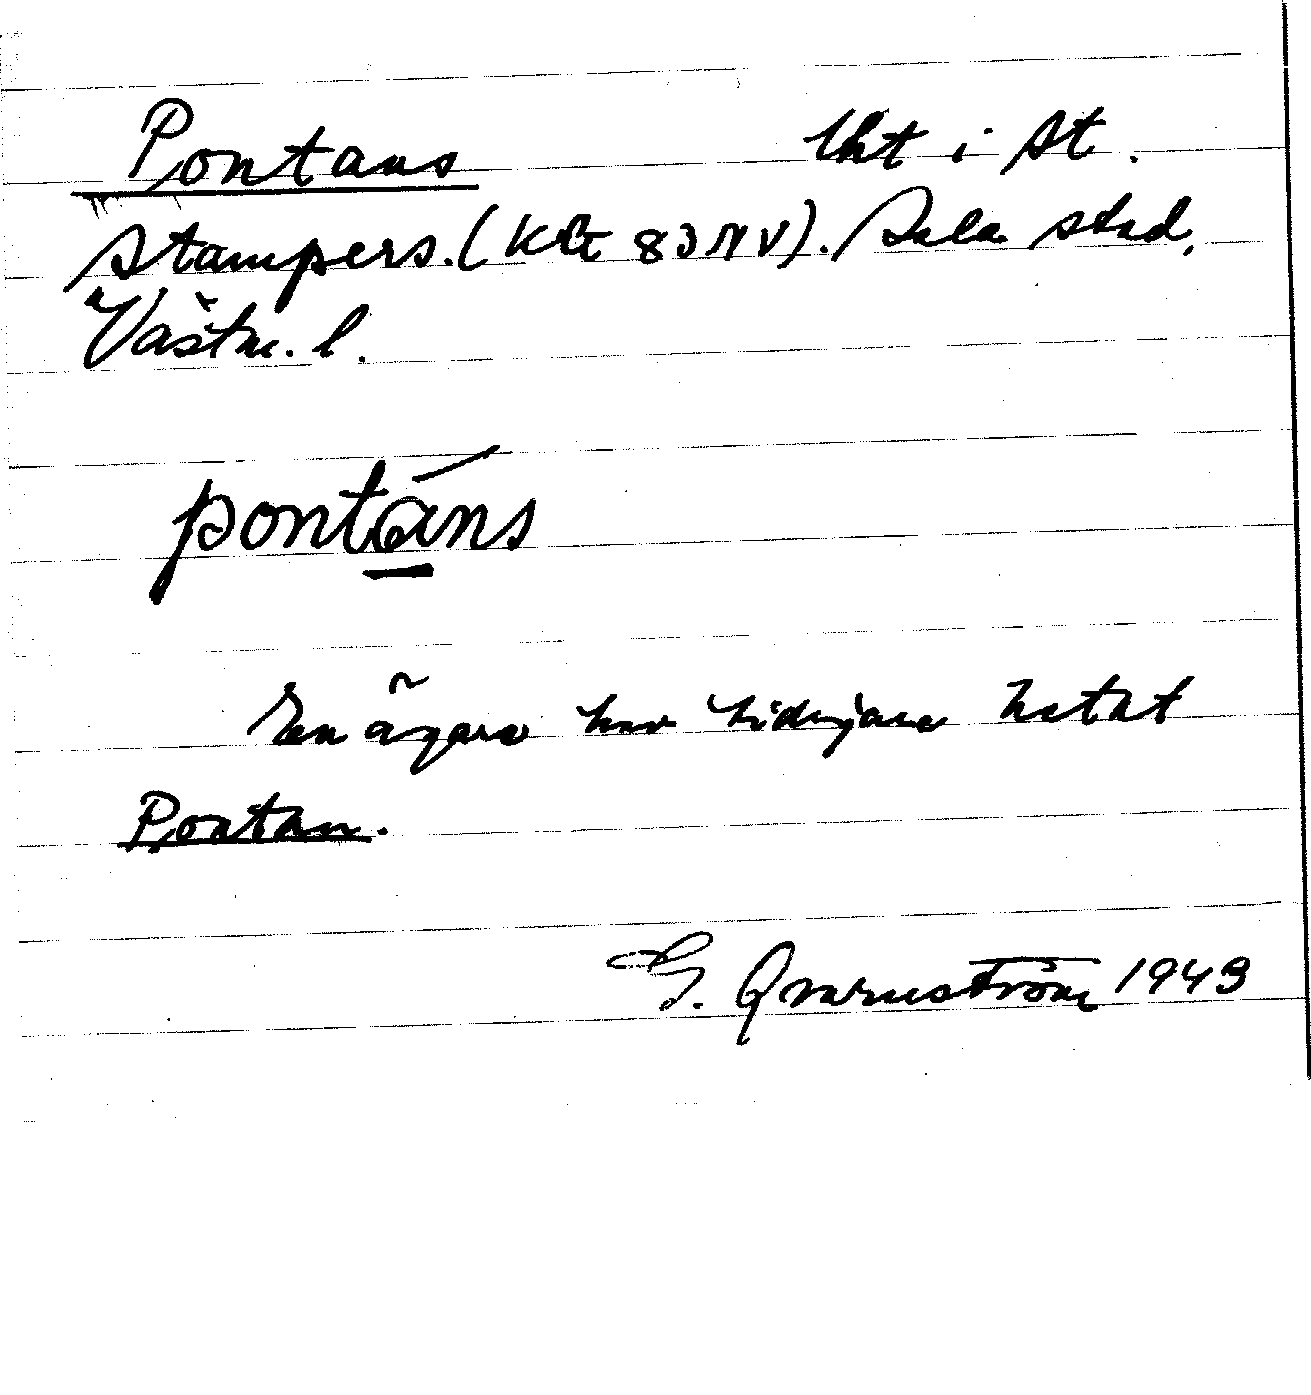 Pontans lht i St.
Stampers. (Kbl 83 NV). Sala stad,
Västm. l.
pontáns
En ägare har tidigare hetat
Pontan.
G. Qvarnström 1943